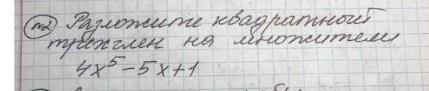 №2 Разложите квадратный
трёхчлен на множители
4x⁵-5x+1